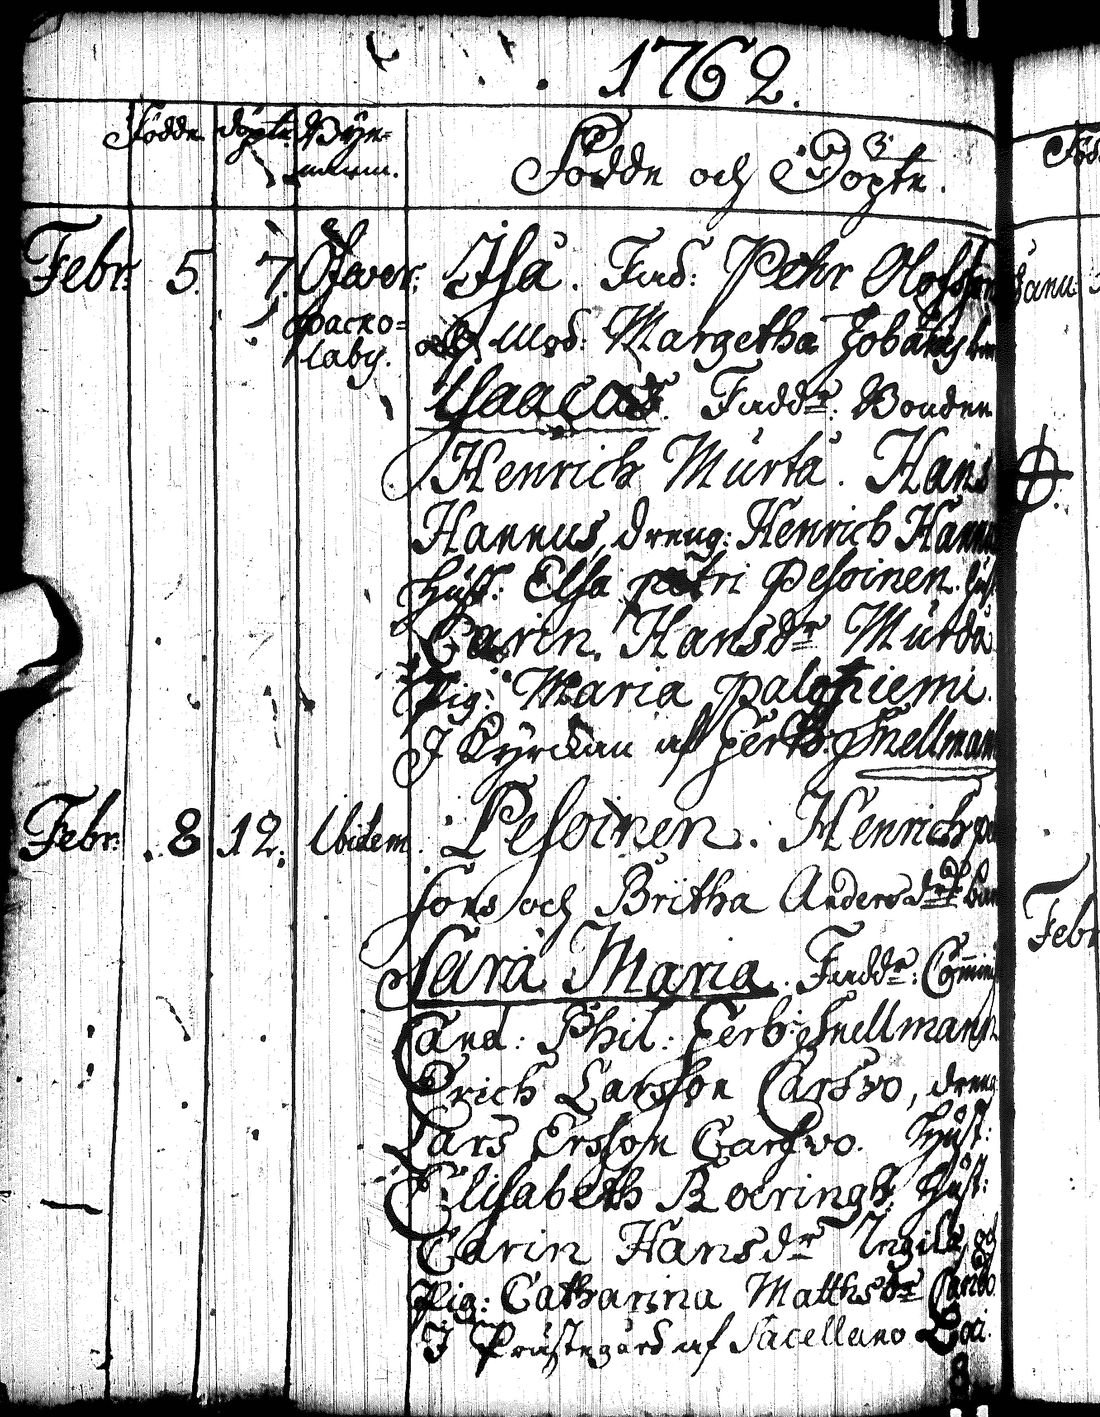 1762.
Födde döpte Bye-
namn.
Födde och Döpte.
Febr: 5. 7. Öfwer: Isä. Fad: Pehr Olofsson
backo= och mod: Margetha
laby. Isaacus. Fadd:r Bonden
Henrich Murta. Hans
Hannus, dreng: Henrich Hannu
Hust: Elsa petri Pesoinen. Hust
Carin Hansd:r Murta
Pig: Maria paloniemi.
I Kyrckan af herb: Snellman
Febr: 8 12. Ibidem. Pesoinen. Henrich
sons och Britha Andersd:r
Sara Maria. Fadd:r: Commini
Cand: Phil: herb: Snellmann
Erich Larsson Carsvo, dreng
Lars Ersson Carsvo. Hust:
Elisabeth Roeringh, Hust:
Carin Hansd:r och
Pig: Catharina Matthsd:r
I Prästegård af Sacellano Loci.
8
Födde
Janu:
Febr